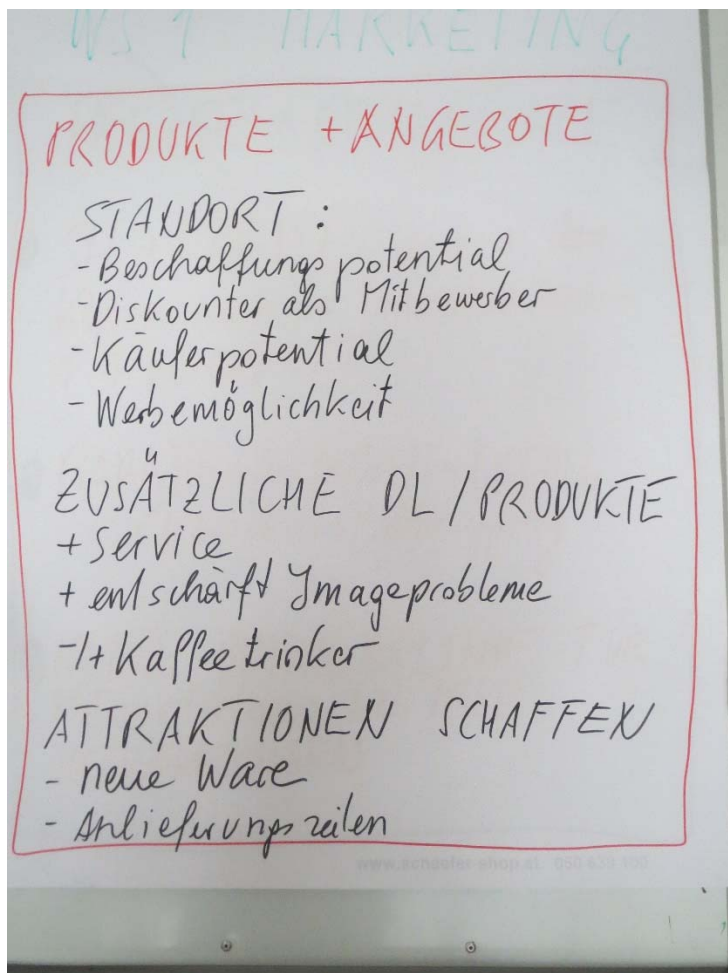 WS 1 MARKETING
PRODUKTE + ANGEBOTE
STANDORT:
- Beschaffungspotential
- Diskounter als Mitbewerber
- Käuferpotential
- Werbemöglichkeit
ZUSÄTZLICHE DL / PRODUKTE
+ Service
+ entschärft Imageprobleme
-/+ Kaffeetrinker
ATTRAKTIONEN SCHAFFEN
- neue Ware
- Anlieferungszeiten